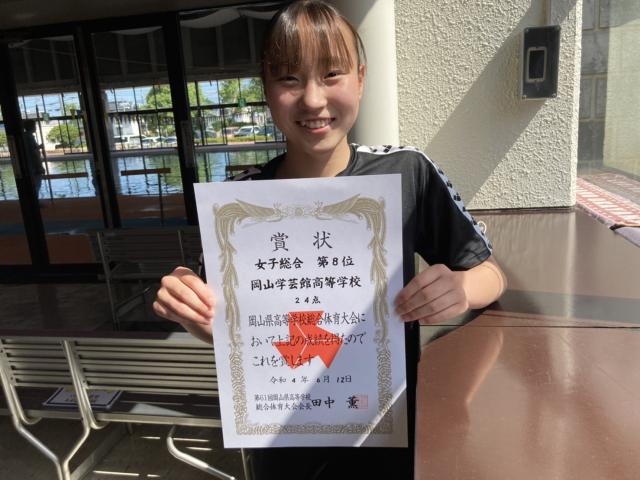 賞状
女子総合 第8位
岡山学芸館高等学校
24点
岡山県高等学校総合体育大会に
おいて上記の成績を得たので
これを賞します
令和 4 年 6 月 12日
第61回岡山県高等学校
総合体育大会会長 田中 薫